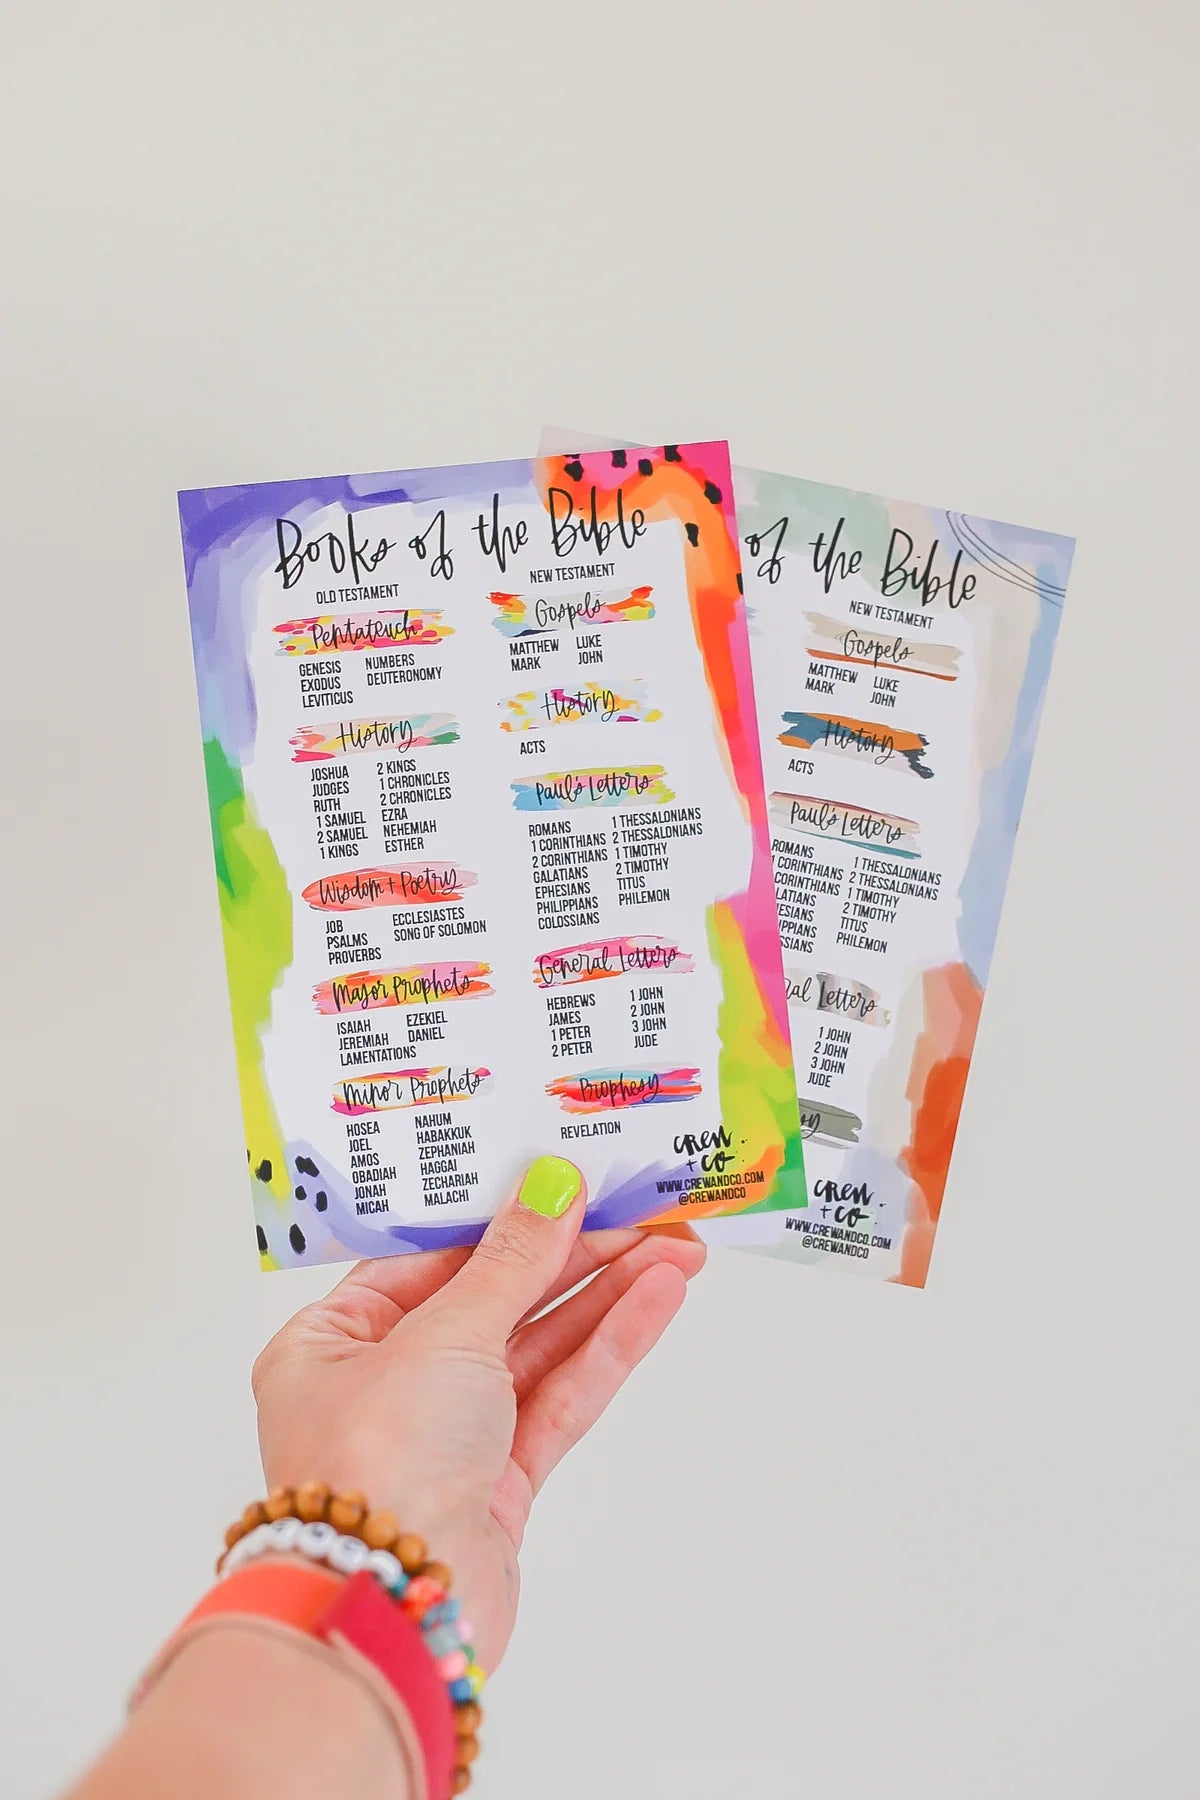 Books of the Bible
OLD TESTAMENT
Pentateuch
GENESIS NUMBERS
EXODUS DEUTERONOMY
LEVITICUS
History
JOSHUA 2 KINGS
JUDGES 1 CHRONICLES
RUTH 2 CHRONICLES
1 SAMUEL EZRA
2 SAMUEL NEHEMIAH
1 KINGS ESTHER
Wisdom + Poetry
JOB ECCLESIASTES
PSALMS SONG OF SOLOMON
PROVERBS
Major Prophets
ISAIAH EZEKIEL
JEREMIAH DANIEL
LAMENTATIONS
Minor Prophets
HOSEA NAHUM
JOEL HABAKKUK
AMOS ZEPHANIAH
OBADIAH HAGGAI
JONAH ZECHARIAH
MICAH MALACHI
NEW TESTAMENT
Gospels
MATTHEW LUKE
MARK JOHN
History
ACTS
Paul's Letters
ROMANS 1 THESSALONIANS
1 CORINTHIANS 2 THESSALONIANS
2 CORINTHIANS 1 TIMOTHY
GALATIANS 2 TIMOTHY
EPHESIANS TITUS
PHILIPPIANS PHILEMON
COLOSSIANS
General Letters
HEBREWS 1 JOHN
JAMES 2 JOHN
1 PETER 3 JOHN
2 PETER JUDE
Prophesy
REVELATION
crew
+ co
WWW.CREWANDCO.COM
@CREWANDCO
of the Bible
NEW TESTAMENT
Gospels
MATTHEW LUKE
MARK JOHN
History
ACTS
Paul's Letters
ROMANS 1 THESSALONIANS
1 CORINTHIANS 2 THESSALONIANS
CORINTHIANS 1 TIMOTHY
LATIANS 2 TIMOTHY
ESIANS TITUS
IPPIANS PHILEMON
SSIANS
ral Letters
1 JOHN
2 JOHN
3 JOHN
JUDE
sy
crew
+ co
WWW.CREWANDCO.COM
@CREWANDCO